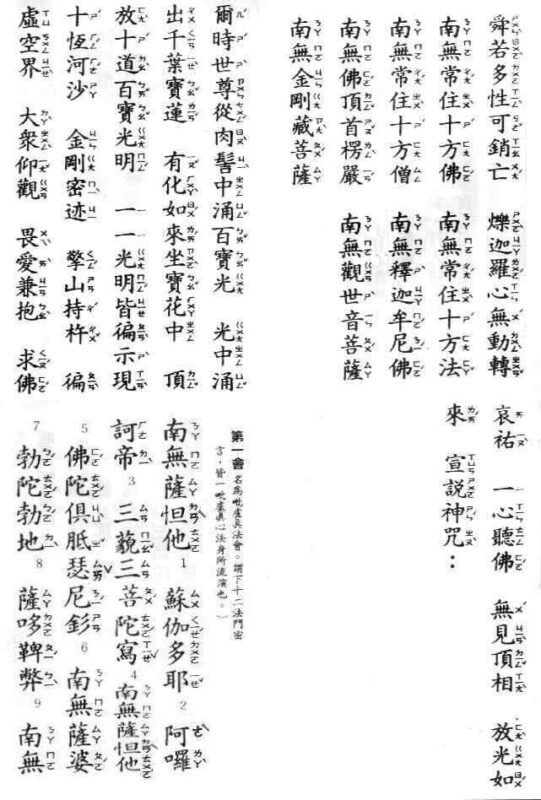 舜若多性可銷亡 爍迦羅心無動轉
南無常住十方佛 南無常住十方法
南無常住十方僧 南無釋迦牟尼佛
南無佛頂首楞嚴 南無觀世音菩薩
南無金剛藏菩薩
爾時世尊從肉髻中涌百寶光 光中涌
出千葉寶蓮 有化如來坐寶花中 頂
放十道百寶光明 一一光明皆徧示現
十恆河沙 金剛密迹 擎山持杵 徧
虛空界 大眾仰觀 畏愛兼抱 求佛
哀祐 一心聽佛 無見頂相 放光如
來 宣說神咒：
第一會 名為毗盧真法會。謂下十二法門密
言，皆一毗盧真心法身所流演也。）
南無薩怛他 1 蘇伽多耶 2 阿囉
訶帝 3 三藐三菩陀寫 4 南無薩怛他
5 佛陀俱胝瑟尼釤 6 南無薩婆
7 勃陀勃地 8 薩哆鞞弊 9 南無